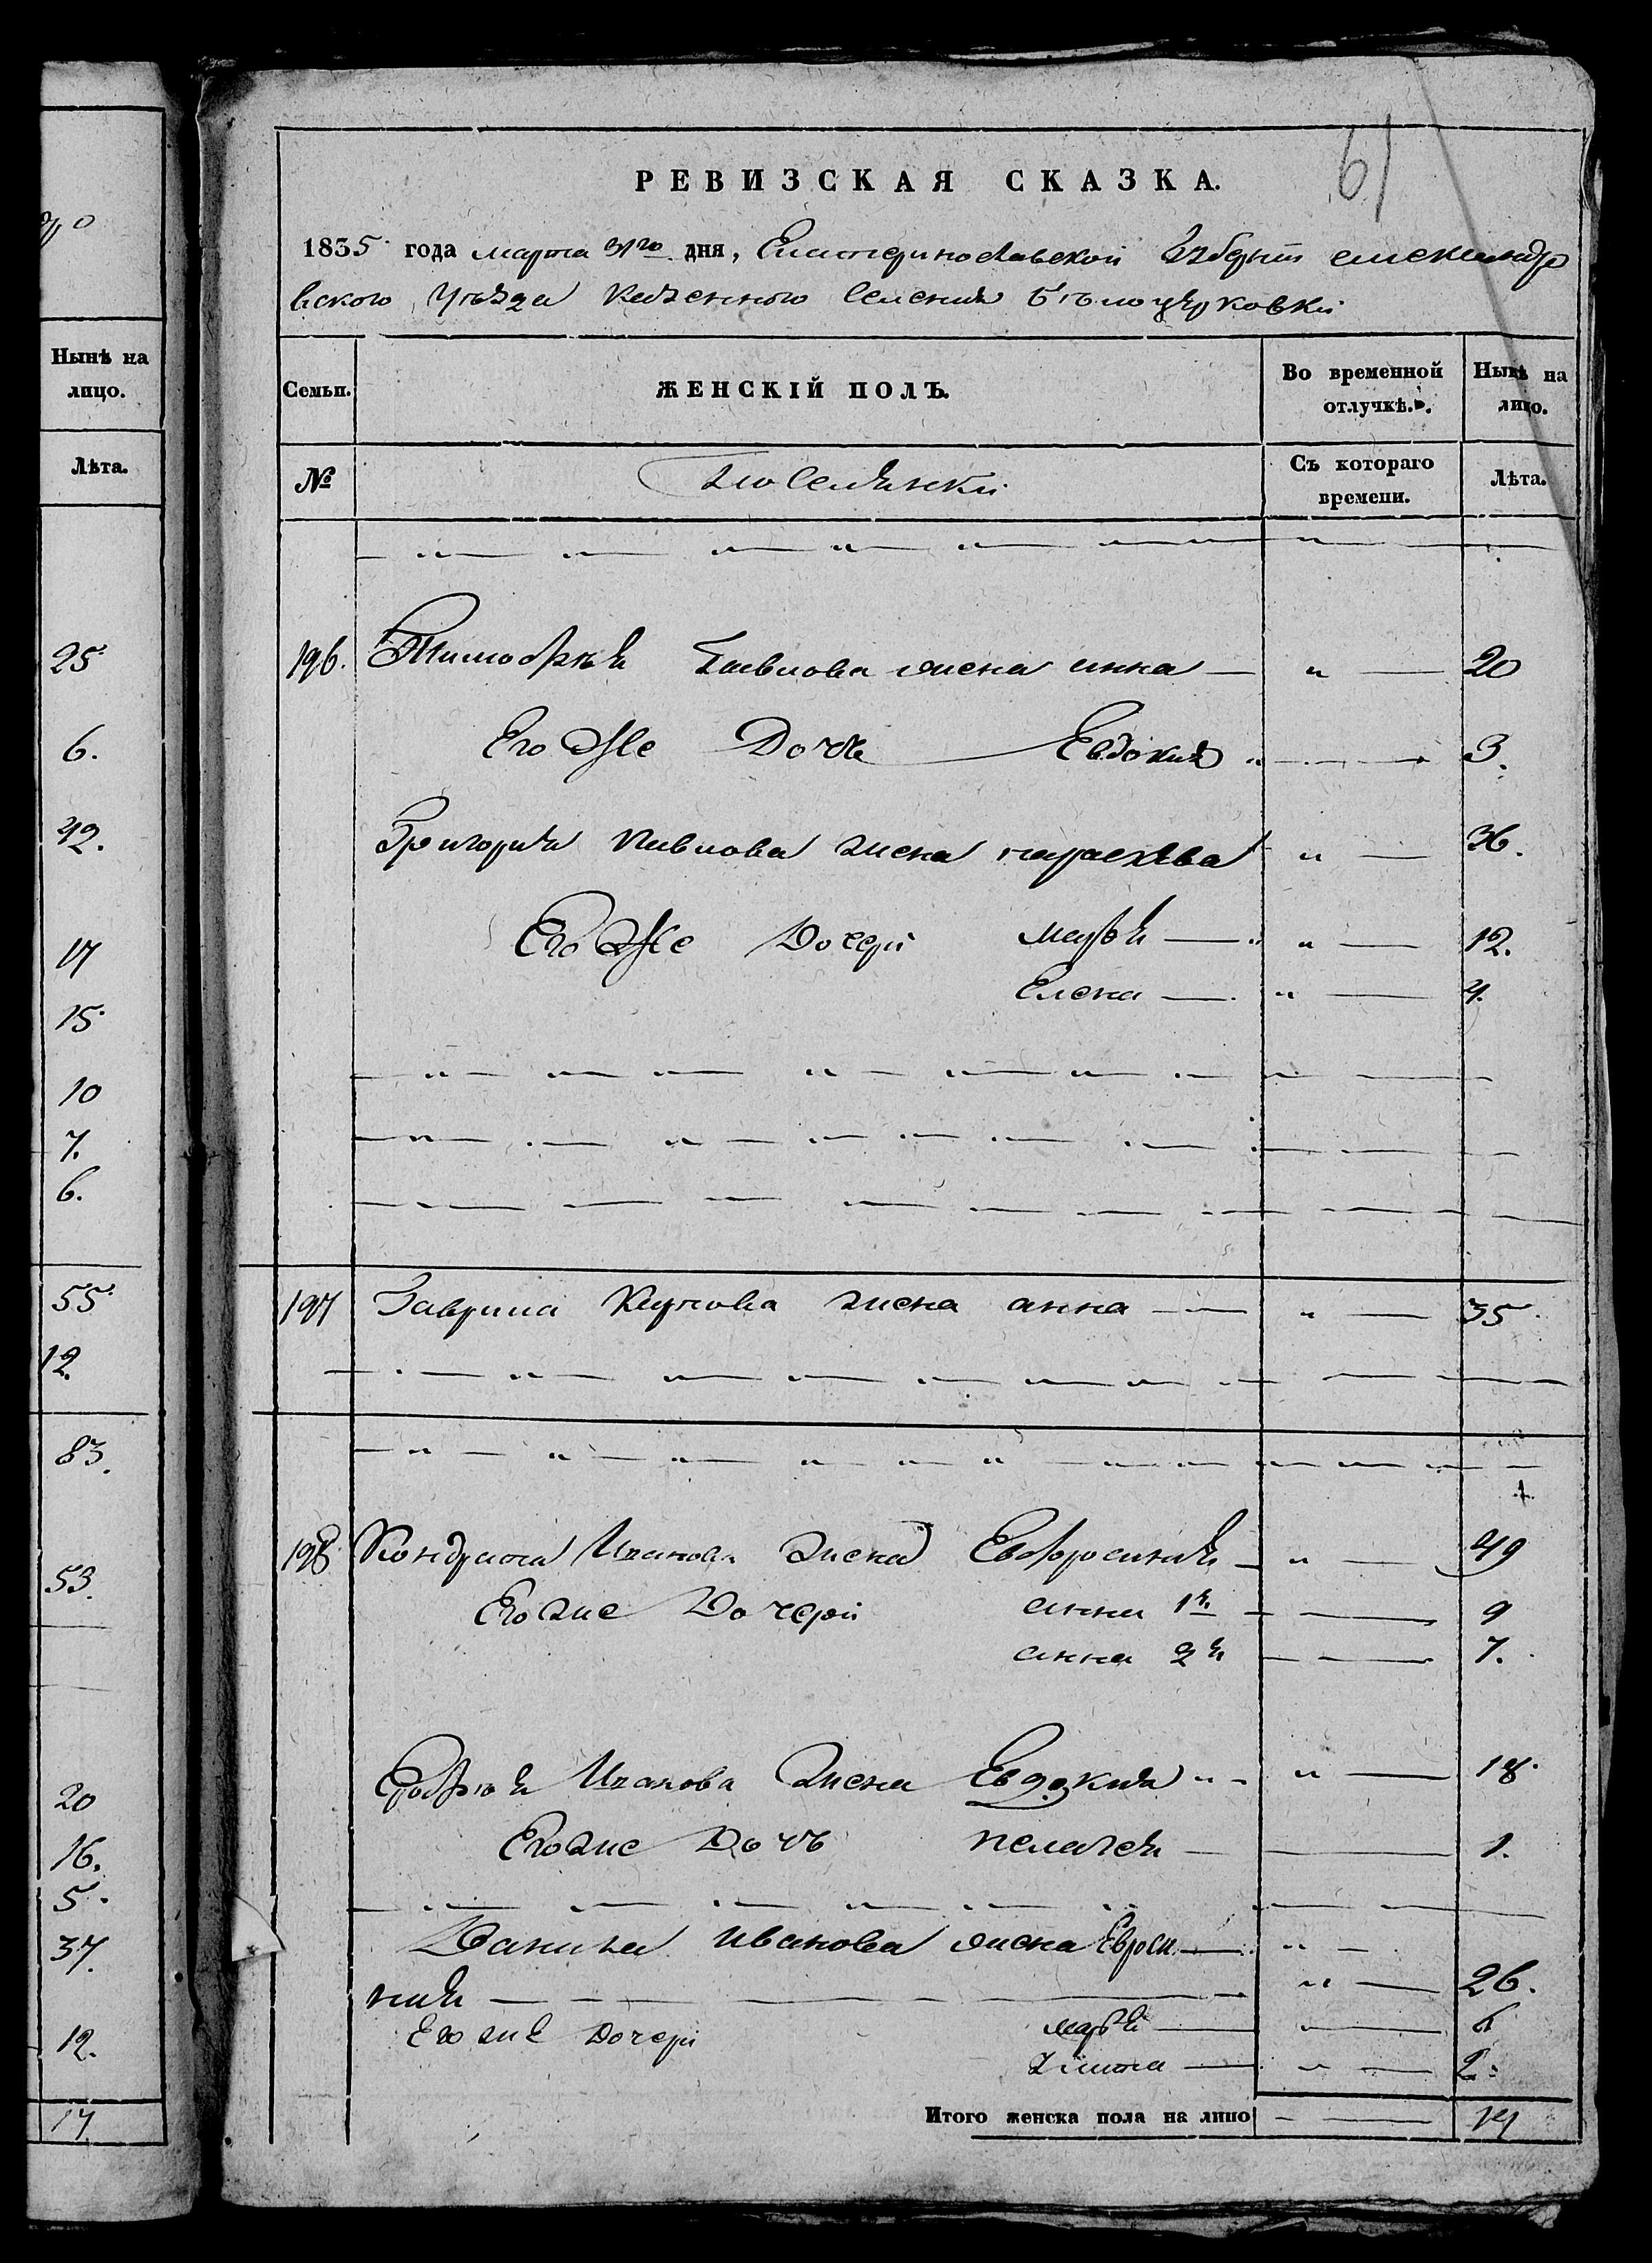 61
РЕВИЗСКАЯ СКАЗКА.
1835 года марта 31го дня, Екатеринославской Губернии александр
вского уезда казенного селения Белоцерковки
Нынѣ на лицо.
Лѣта.
25
6.
42.
17
15
10
7.
6.
55
12.
83.
53.
20
16.
5.
37.
12.
17
Семьи. ЖЕНСКІЙ ПОЛЪ. Во временной отлучкѣ. Нынѣ на лицо.
№ поселянки Съ котораго времени. Лѣта.
196. Тимофея Павлова жена анна — " — 20
Его же Дочь Евдокия " — 3.
Григория Павлова жена параскева " — 36.
Его же Дочери марья — " — 12.
Елена — " — 4.
197 Гаврила Карпова жена анна — " — 35
198 Кондрата Иванова жена Евфросиния — " — 49
Его же Дочери анна 1я — 9
анна 2я — 7.
Иванова жена Евдокия " — " — 18.
Его же Дочь пелагея — 1.
Данила иванова жена Евроси — " —
ния — " — 26.
Его же Дочери марья — " — 6
— " — 2.
Итого женска пола на лицо — 14